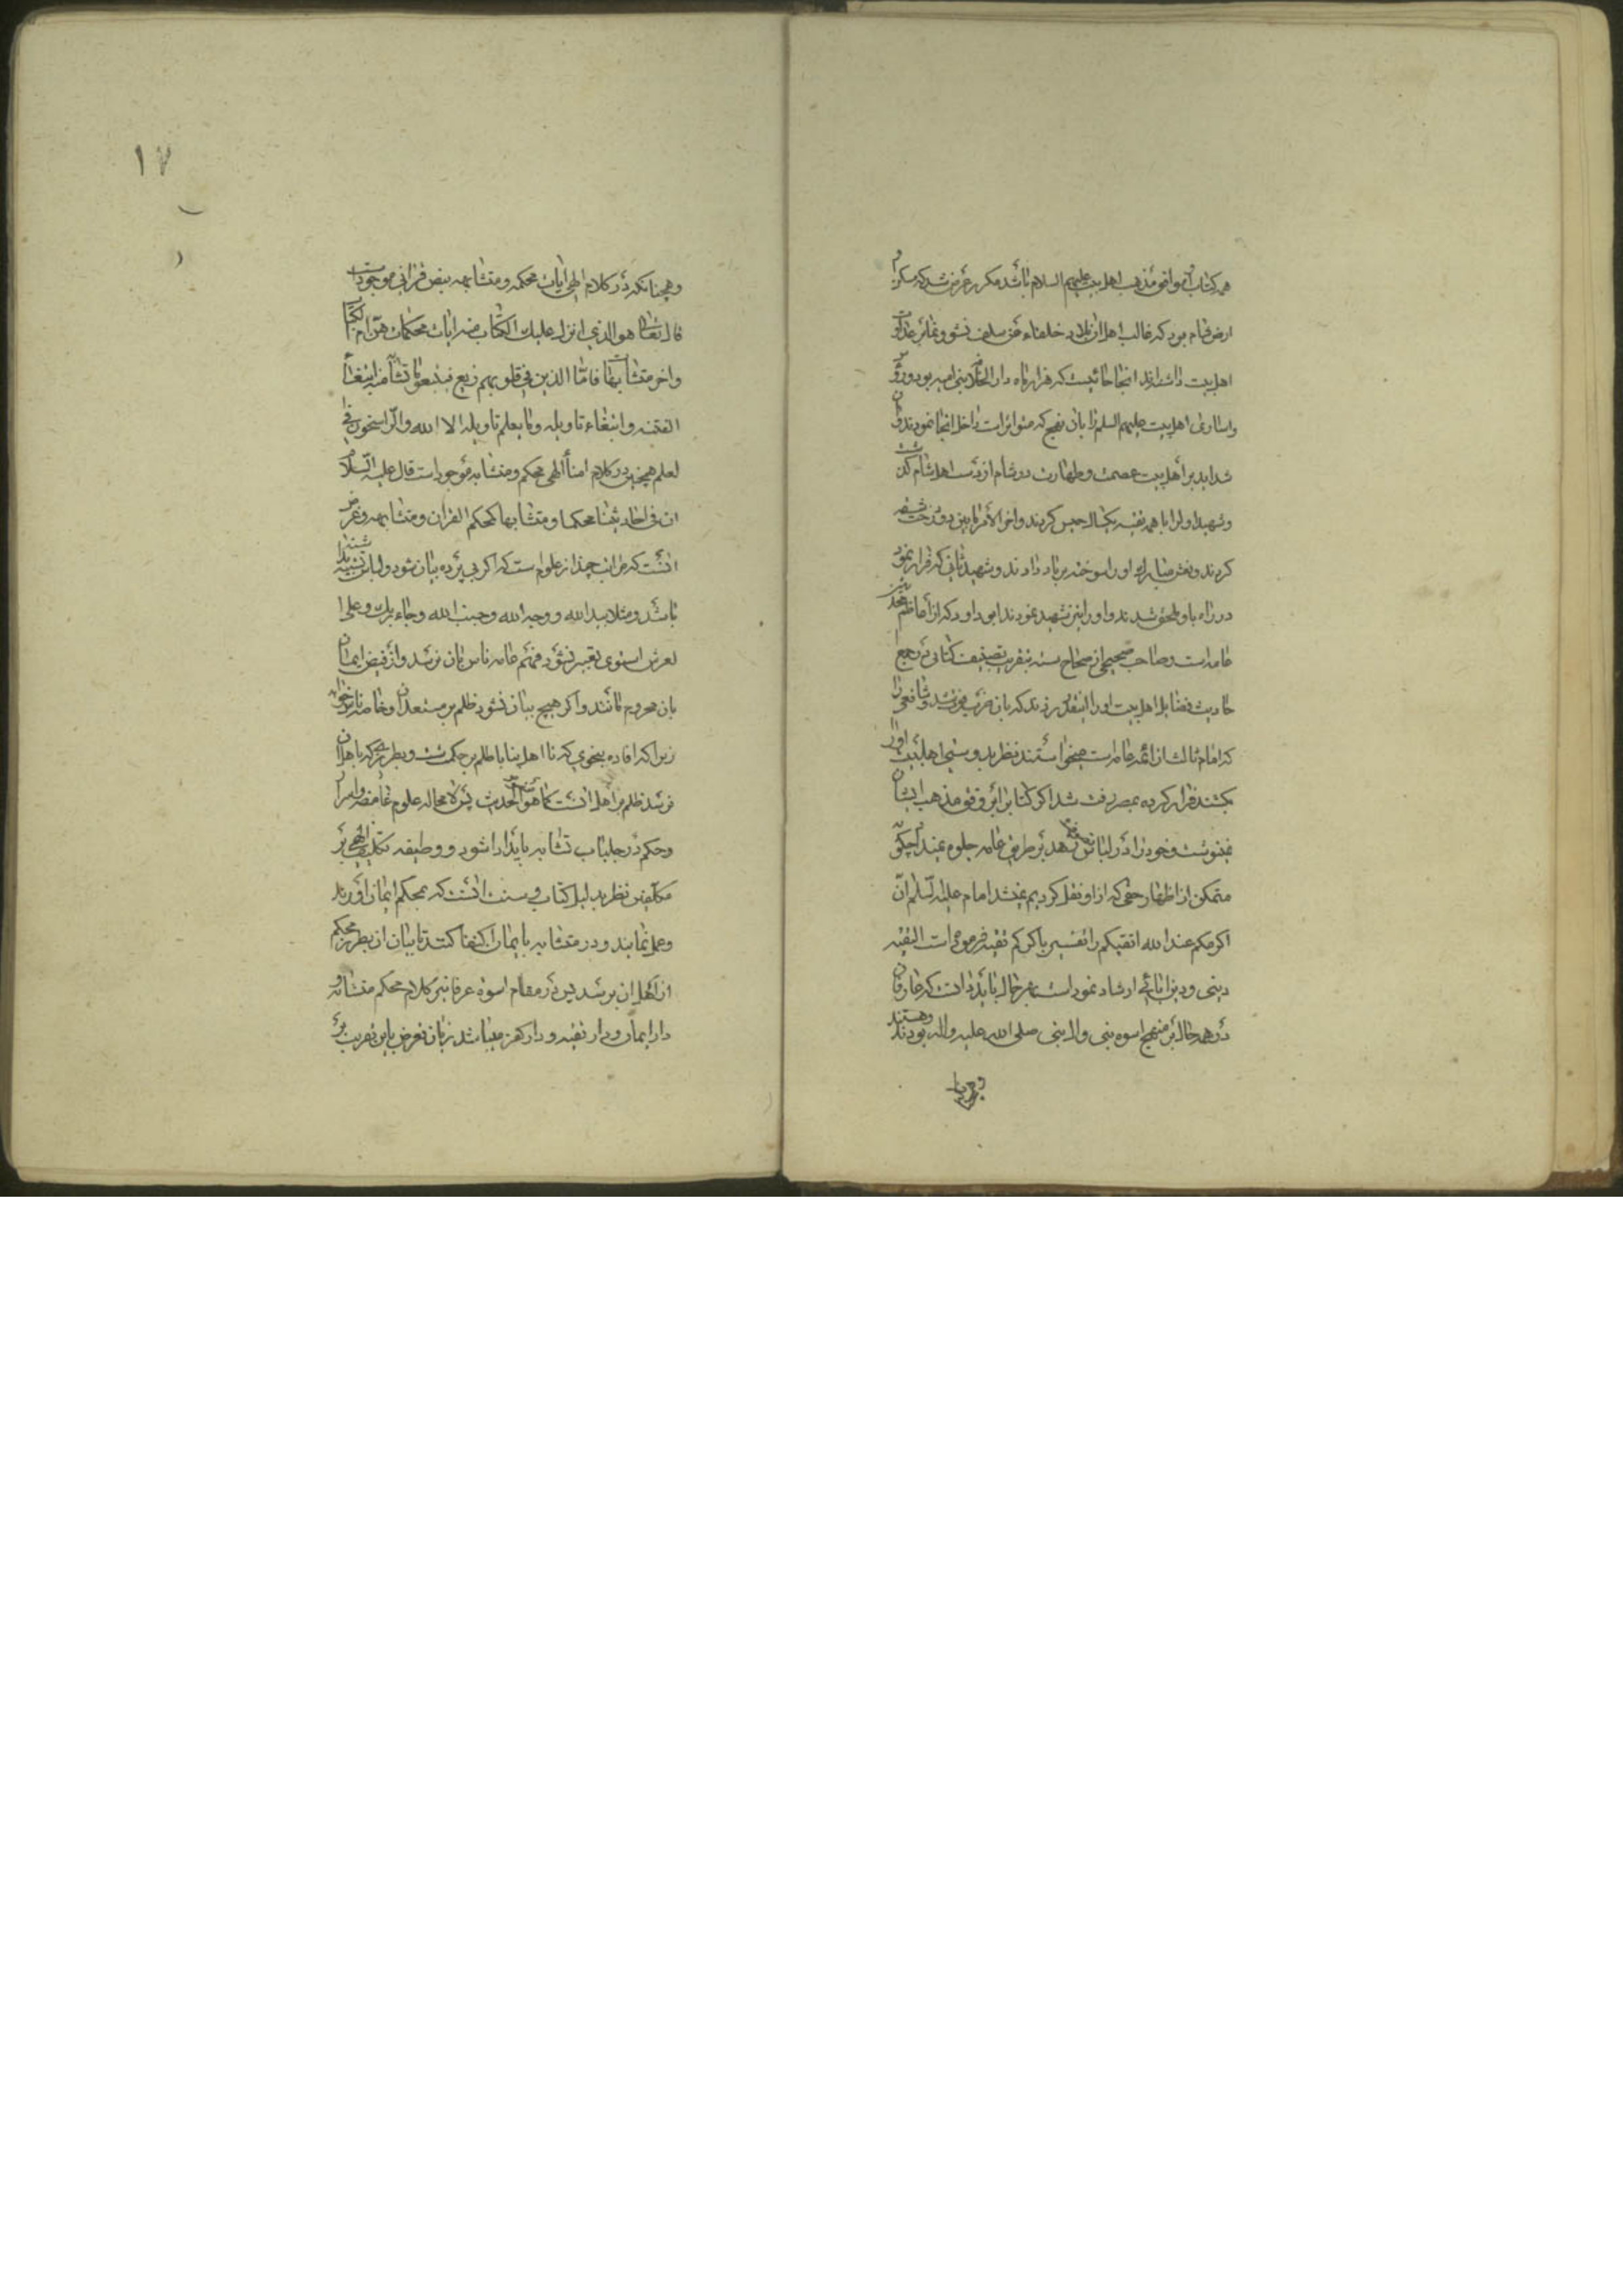 همه کتاب موافق مذهب اهل بیت علیهم السلام باشد مکرر عرض شد که مسکن
ارض شام بود که غالب اهل ان بلاد خلفاء عن سلف نشو و نما بر عداوت
اهل بیت داشته‌اند انجا جائیست که هزار ماه دار الخلافه بنی امیه بود و ورود
واسارای اهل بیت علیهم السلم را بان نهج که متواتر است داخل انجا نمودند و ان
شداید بر اهل بیت عصمت و طهارت در شام از دست اهل شام گذشت
و شهید اول را با همه تقیه یکسال حبس کردند واخر الامر مابین دو درخت شقه
کردند و نعش مبارک او را سوخته بر باد دادند و شهید ثانی که فرار نمود
در راه باو ملحق شدند و او را نیز شهید نمودند ابو داود که از اعاظم محدثین
عامه است و صاحب صحیحی از صحاح سته بتقریب تصنیف کتابی در جمع ا
حادیث فضایل اهل بیت او را انقدر زدند که بان ضرب فوت شد و شافعی را
که امام ثالث از ائمه عامه است میخواستند نظر بدوستی اهل بیت او را
بکشند فرار کرده بمصر رفت شد اگر کتابرا بر وفق مذهب ایشان
نمینوشت و خود را در لباس تزهد بر طریق عامه جلوه نمیداد چگونه
متمکن از اظهار حقی که از او نقل کردیم میشد امام علیه السلم ان
اکرمکم عند الله اتقیکم را تفسیر باکثرکم تقیه فرموده است التقیه
دینی و دین ابائی ارشاد نموده است بهر حال باید دانست که عارفان
در همه حال بر منهج اسوه نبی وال نبی صلی الله علیه واله بودند و هستند
و همچنانکه
١٧
و همچنانکه در کلام الهی ایات محکمه و متشابهه بنص قرانی موجود است
قال تعالی هو الذی انزل علیک الکتاب منه ایات محکمات هن ام الکتاب
واخر متشابهات فاما الذین فی قلوبهم زیغ فیتبعون ما تشابه منه ابتغاء
الفتنه وابتغاء تاویله وما یعلم تاویله الا الله والراسخون فی ا
لعلم همچنین در کلام امناء الهی محکم و متشابه موجود است قال علیه السلام
ان فی احادیثنا محکما و متشابها کمحکم القران و متشابهه و غرض
انست که مراتب چند از علوم ست که اگر بی پرده بیان شود و لباس تشبیه نداشته
باشد و مثلا بید الله و وجه الله و جنب الله و جاء ربک و علی ا
لعرش استوی تعبیر نشود فهم عامه ناس بان نرسد و از فیض ایمان
بان محروم مانند و اگر هیچ بیان نشود ظلم بر مستعدان و خاصه ناس خواهد بود
زیرا که افاده بنحوی که نا اهل بیابد ظلم بر حکمت ست و بطرزی که باهل ان
نرسد ظلم بر اهل انست کما هو الحدیث پس لا محاله علوم غامضه و اسرار
و حکم در جلباب تشابه باید ادا شود و وظیفه تکلیف الهی بر
مکلفین نظر بدلیل کتاب و سنت انست که بمحکم ایمان اورند
و عمل نمایند و در متشابه بایمان اکتفا کنند تا بیان ان بطرز محکم
از اهل ان برسد پس در مقام اسوه عرفا نیز کلام محکم متشابه و
دار ایمان و دار تقیه و دار کفر میباشد زبان تعرض باین تقریب بر